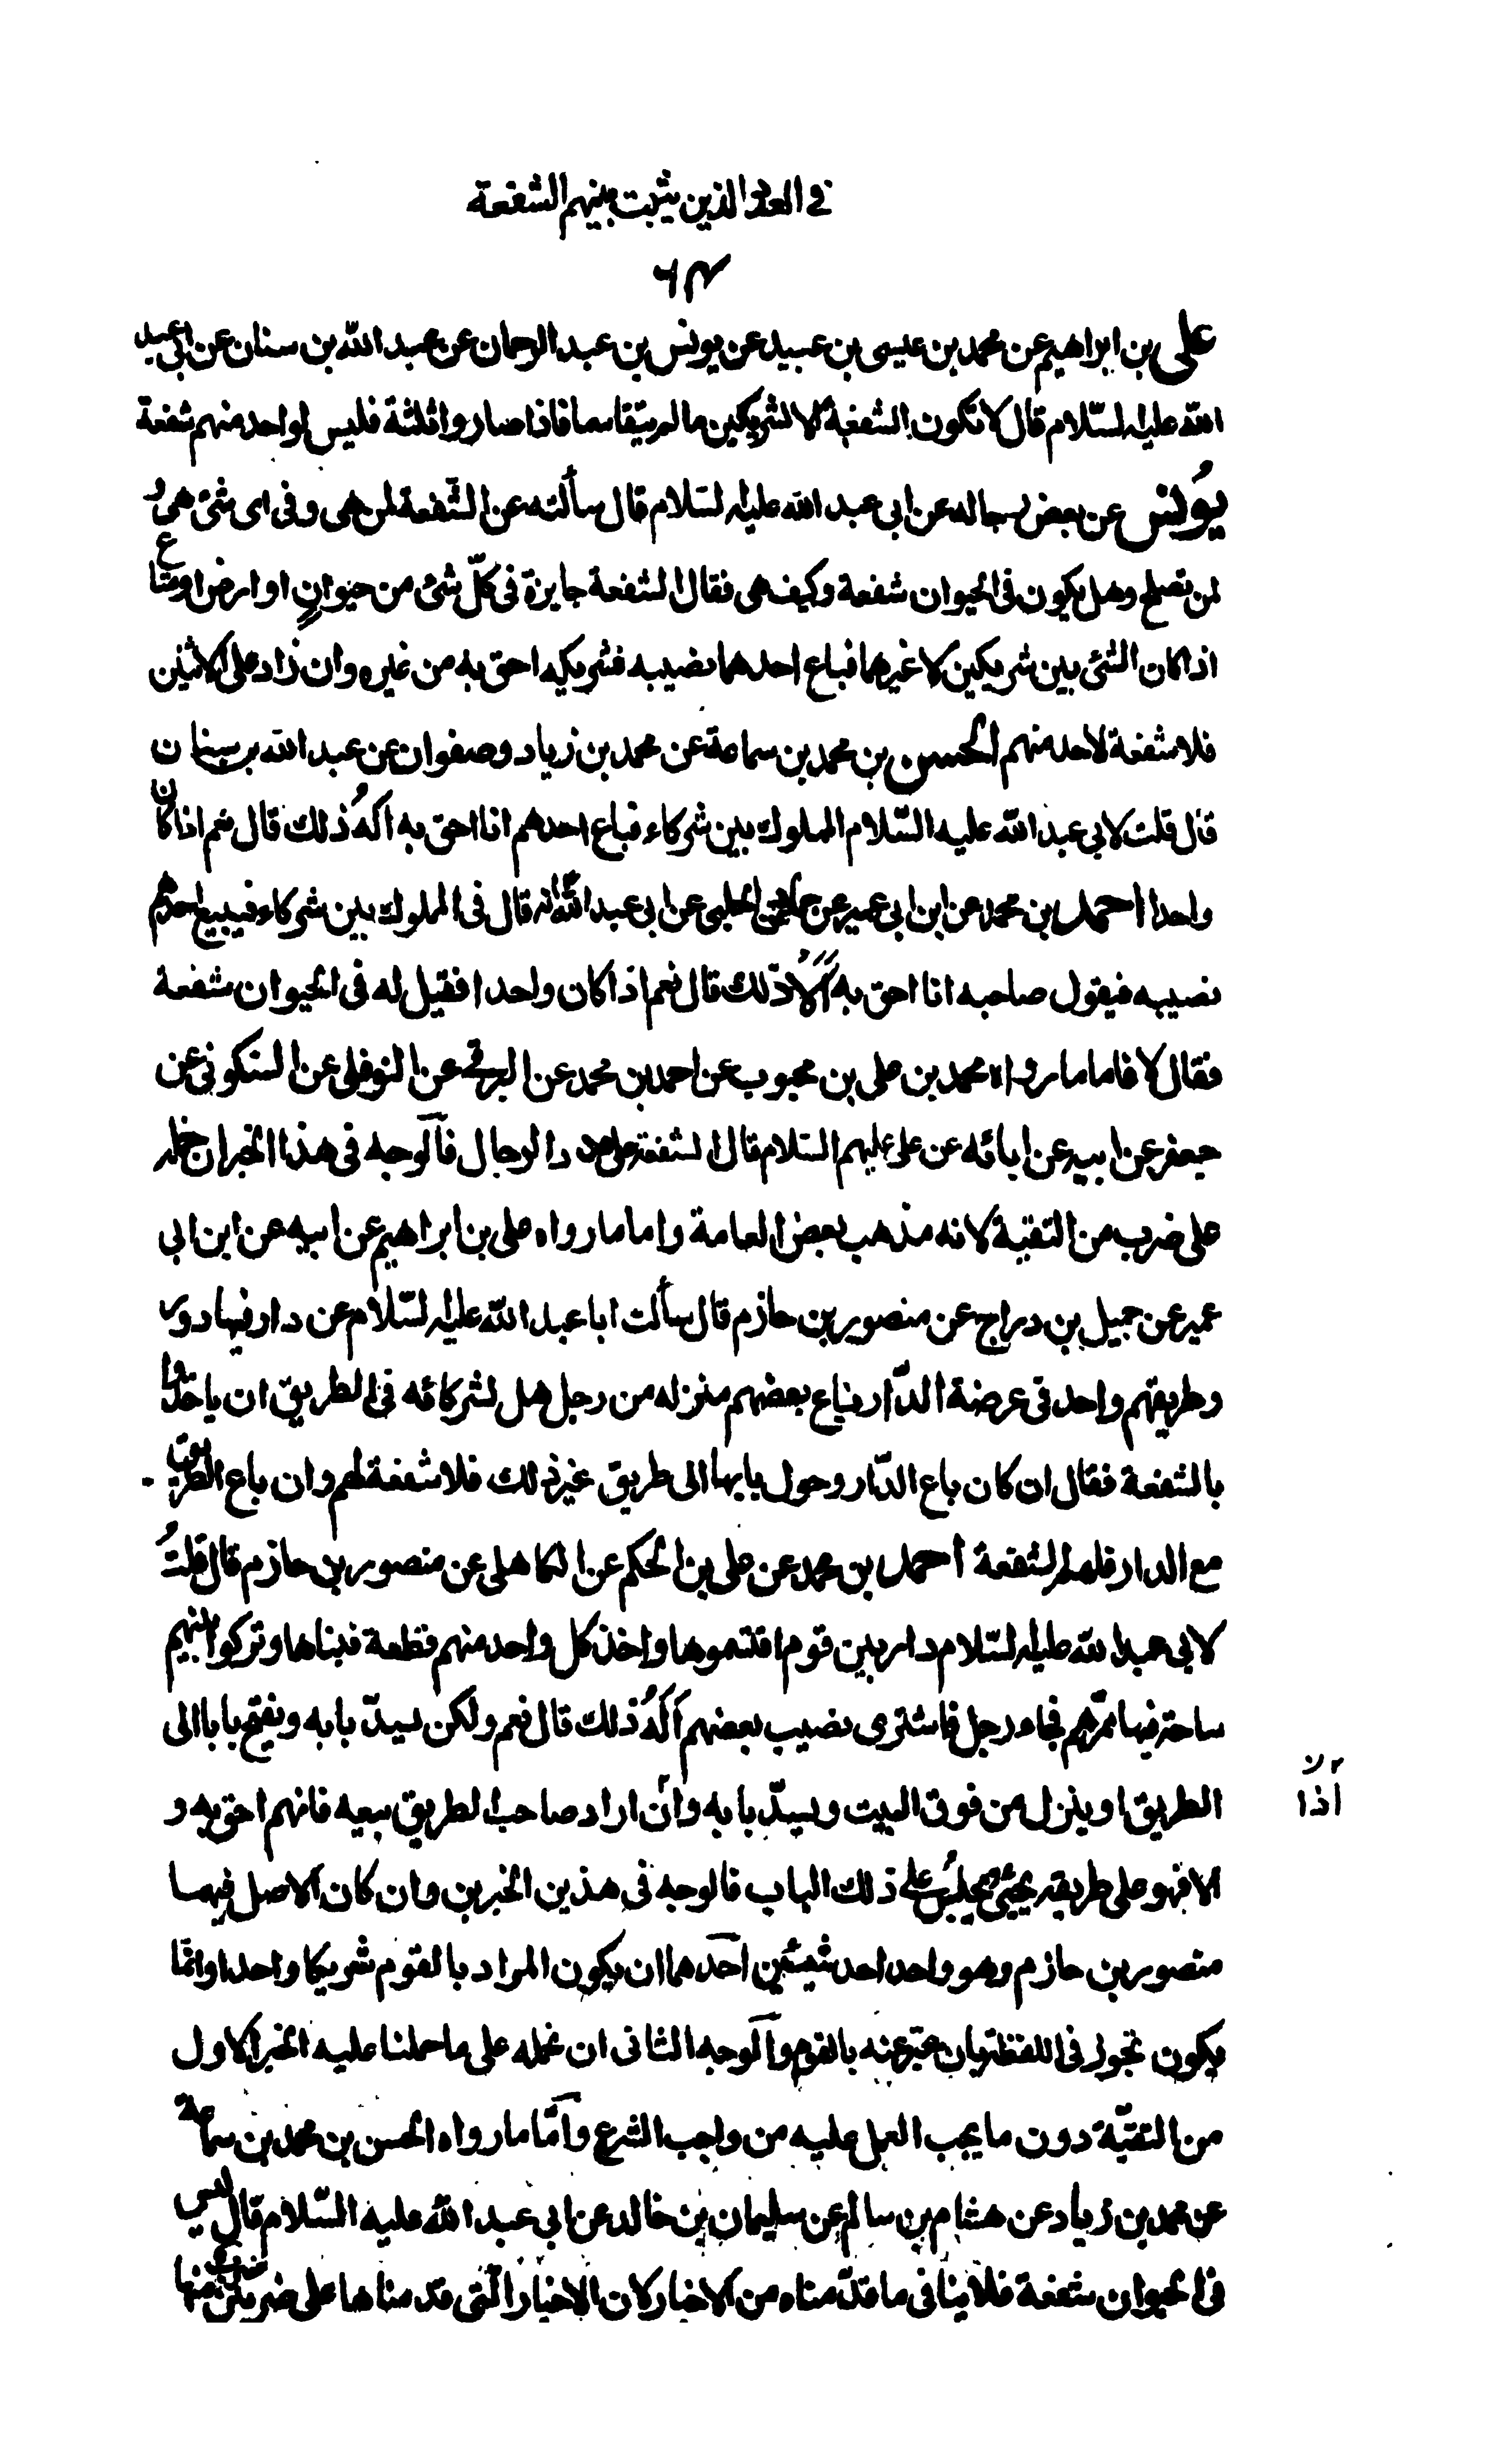 في العدد الذين يثبت بينهم الشفعة
٦٣
علي بن ابراهيم عن محمد بن عيسى بن عبيد عن يونس بن عبد الرحمان عن عبد الله بن سنان عن ابي عبد
الله عليه السّلام قال لا تكون الشفعة الا لشريكين ما لم يتقاسما فاذا صاروا ثلثة فليس لواحد منهم شفعة
يونس عن بعض رجاله عن ابي عبد الله عليه السّلام قال سألته عن الشّفعة لمن هي وفي اي شئ هي و
لمن تصلح وهل يكون في الحيوان شفعة وكيف هي فقال الشفعة جايزة في كلّ شئ من حيوان او ارض او متاع
اذا كان الشئ بين شريكين لا غيرهما فباع احدهما نصيبه فشريكه احق به من غيره وان زاد على الاثنين
فلا شفعة لاحد منهم الحسن بن محمد بن سماعة عن محمد بن زياد وصفوان عن عبد الله بن سنان
قال قلت لابي عبد الله عليه السّلام المملوك بين شركاء فباع احدهم انا احق به أله ذلك قال نعم اذا كان
واحدا احمد بن محمد عن ابن ابي عمير عن حماد عن الحلبي عن ابي عبد الله انه قال في المملوك بين شركاء فيبيع احدهم
نصيبه فيقول صاحبه انا احق به أله ذلك قال نعم اذا كان واحدا فقيل له في الحيوان شفعة
فقال لا فاما ما رواه محمد بن علي بن محبوب عن احمد بن محمد عن البرقي عن النوفلي عن السكوني عن
جعفر عن ابيه عن ابائه عن علي عليهم السّلام قال الشفعة على عدد الرجال فالوجه في هذا الخبر ان نحمله
على ضرب من التقية لانه مذهب بعض العامة واما ما رواه علي بن ابراهيم عن ابيه عن ابن ابي
عمير عن جميل بن دراج عن منصور بن حازم قال سألت ابا عبد الله عليه السّلام عن دار فيها دور
وطريقهم واحد في عرصة الدّار فباع بعضهم منزله من رجل هل لشركائه في الطريق ان ياخذوا
بالشفعة فقال ان كان باع الدّار وحول بابها الى طريق غير ذلك فلا شفعة لهم وان باع الطريق
مع الدار فلهم الشفعة احمد بن محمد عن علي بن الحكم عن الكاهلي عن منصور بن حازم قال قلت
لابي عبد الله عليه السّلام دار بين قوم اقتسموها واخذ كل واحد منهم قطعة فبناها وتركوا بينهم
ساحة فيها ممرّهم فجاء رجل فاشترى نصيب بعضهم أله ذلك قال نعم ولكن يسدّ بابه ويفتح بابا الى
الطريق او ينزل من فوق البيت ويسدّ بابه وان اراد صاحب الطريق بيعه فانهم احق به و
اذا
الا فهو على طريقه يجئ يجلس على ذلك الباب فالوجه في هذين الخبرين وان كان الاصل فيهما
منصور بن حازم وهو واحد احد شيئين احدهما ان يكون المراد بالقوم شريكا واحدا وانما
يكون تجوز في اللفظ بان عبّر عنه بالقوم والوجه الثاني ان نحمله على ما حملنا عليه الخبر الاول
من التقيّة دون ما يجب العمل عليه من واجب الشرع وامّا ما رواه الحسن بن محمد بن سماعة
عن محمد بن زياد عن هشام بن سالم عن سليمان بن خالد عن ابي عبد الله عليه السّلام قال ليس
في الحيوان شفعة فلا ينافي ما قدّمناه من الاخبار لان الاخبار الّتي قدمناها على ضربين منها